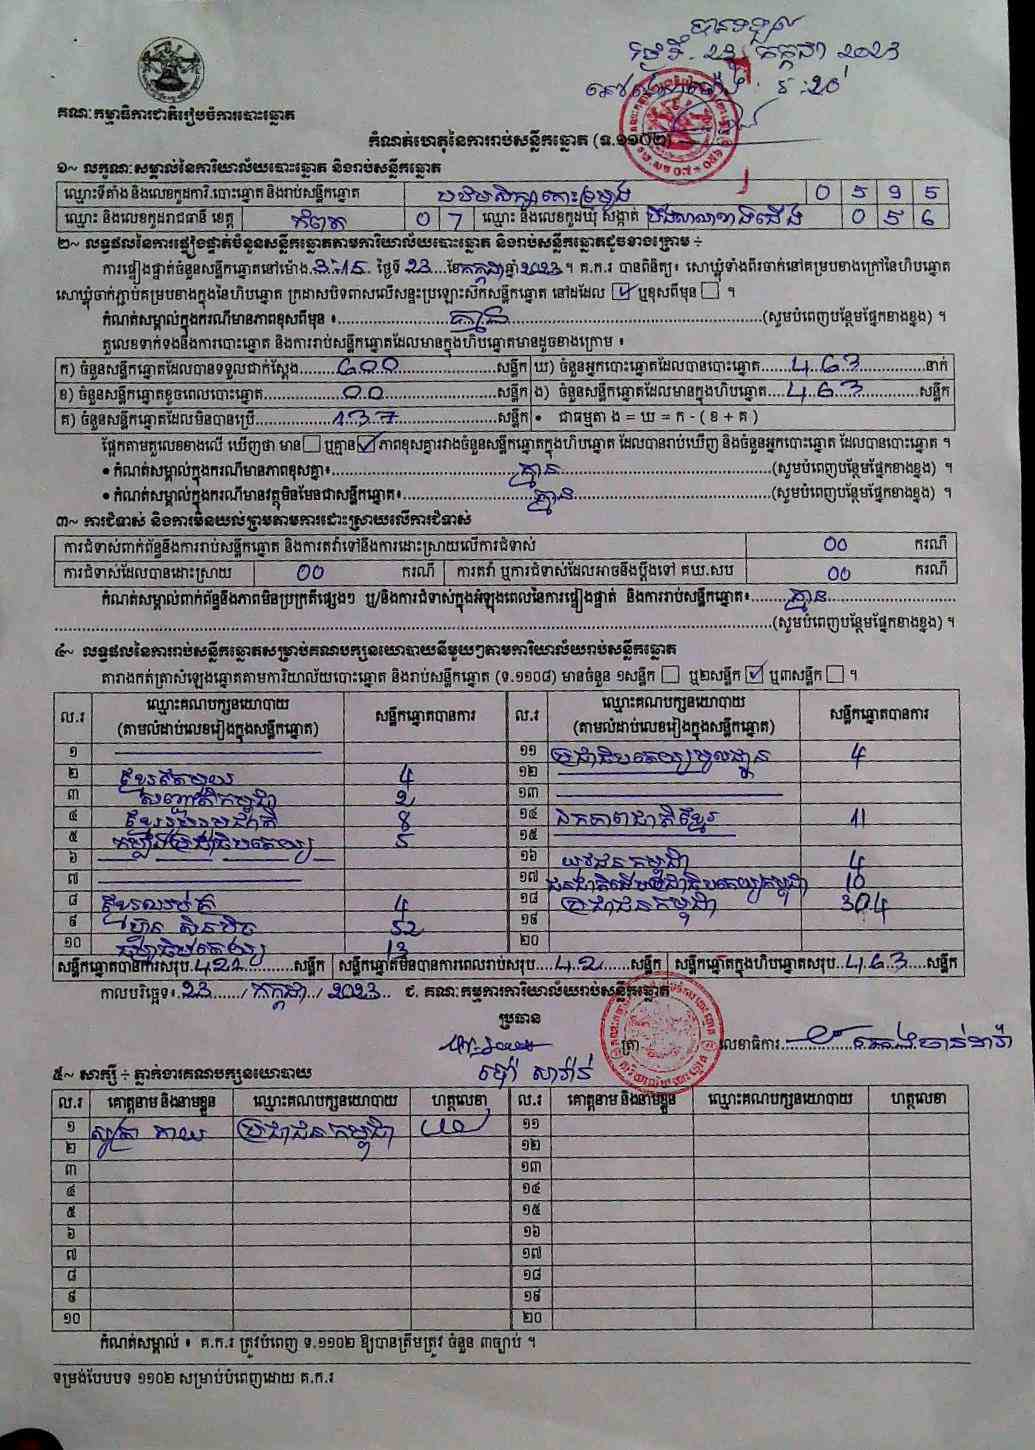 បានទទួល
ថ្ងៃទី. 23 កក្កដា 2023
គណៈកម្មាធិការជាតិរៀបចំការបោះឆ្នោត
កំណត់ហេតុនៃការរាប់សន្លឹកឆ្នោត (ទ.១១០២)
១~ លក្ខណៈសម្គាល់នៃការិយាល័យបោះឆ្នោត និងរាប់សន្លឹកឆ្នោត
ឈ្មោះទីតាំង និងលេខកូដការិ.បោះឆ្នោត និងរាប់សន្លឹកឆ្នោត បឋមសិក្សាកោះទ្រមូង 0 5 9 5
ឈ្មោះ និងលេខកូដរាជធានី ខេត្ត កំពត 0 7 ឈ្មោះ និងលេខកូដឃុំ សង្កាត់ បឹងសាលាខាងជើង 0 5 6
២~ លទ្ធផលនៃការផ្ទៀងផ្ទាត់ចំនួនសន្លឹកឆ្នោតតាមការិយាល័យបោះឆ្នោត និងរាប់សន្លឹកឆ្នោតដូចខាងក្រោម ÷
ការផ្ទៀងផ្ទាត់ចំនួនសន្លឹកឆ្នោតនៅម៉ោង.3:15. ថ្ងៃទី 23 ...ខែកក្កដាឆ្នាំ 2023។ គ.ក.រ បានពិនិត្យ៖ សោឃ្លុំទាំងពីរចាក់នៅគម្របខាងក្រៅនៃហិបឆ្នោត
សោឃ្លុំចាក់ភ្ជាប់គម្របខាងក្នុងនៃហិបឆ្នោត ក្រដាសបិទពាសលើសន្ទះប្រឡោះសឹកសន្លឹកឆ្នោត នៅដដែល ☑ ឬខុសពីមុន ☐ ។
កំណត់សម្គាល់ក្នុងករណីមានភាពខុសពីមុន ៖ គ្មាន (សូមបំពេញបន្ថែមផ្នែកខាងខ្នង) ។
តួលេខទាក់ទងនឹងការបោះឆ្នោត និងការរាប់សន្លឹកឆ្នោតដែលមានក្នុងហិបឆ្នោតមានដូចខាងក្រោម ៖
ក) ចំនួនសន្លឹកឆ្នោតដែលបានទទួលជាក់ស្តែង 600 សន្លឹក ឃ) ចំនួនអ្នកបោះឆ្នោតដែលបានបោះឆ្នោត 463 នាក់
ខ) ចំនួនសន្លឹកឆ្នោតខូចពេលបោះឆ្នោត 00 សន្លឹក ង) ចំនួនសន្លឹកឆ្នោតដែលមានក្នុងហិបឆ្នោត 463 សន្លឹក
គ) ចំនួនសន្លឹកឆ្នោតដែលមិនបានប្រើ 137 សន្លឹក • ជាធម្មតា ង = ឃ = ក - ( ខ + គ )
ផ្អែកតាមតួលេខខាងលើ ឃើញថា មាន ☐ ឬគ្មាន ☑ ភាពខុសគ្នារវាងចំនួនសន្លឹកឆ្នោតក្នុងហិបឆ្នោត ដែលបានរាប់ឃើញ និងចំនួនអ្នកបោះឆ្នោត ដែលបានបោះឆ្នោត ។
• កំណត់សម្គាល់ក្នុងករណីមានភាពខុសគ្នា៖ គ្មាន (សូមបំពេញបន្ថែមផ្នែកខាងខ្នង) ។
• កំណត់សម្គាល់ក្នុងករណីមានវត្ថុមិនមែនជាសន្លឹកឆ្នោត៖ គ្មាន (សូមបំពេញបន្ថែមផ្នែកខាងខ្នង) ។
៣~ ការជំទាស់ និងការមិនយល់ព្រមតាមការដោះស្រាយលើការជំទាស់
ការជំទាស់ពាក់ព័ន្ធនឹងការរាប់សន្លឹកឆ្នោត និងការតវ៉ាទៅនឹងការដោះស្រាយលើការជំទាស់ 00 ករណី
ការជំទាស់ដែលបានដោះស្រាយ 00 ករណី ការតវ៉ា ឬការជំទាស់ដែលអាចនឹងប្តឹងទៅ គឃ.សប 00 ករណី
កំណត់សម្គាល់ពាក់ព័ន្ធនឹងភាពមិនប្រក្រតីផ្សេងៗ ឬ/និងការជំទាស់ក្នុងអំឡុងពេលនៃការផ្ទៀងផ្ទាត់ និងការរាប់សន្លឹកឆ្នោត៖ គ្មាន
(សូមបំពេញបន្ថែមផ្នែកខាងខ្នង) ។
៤~ លទ្ធផលនៃការរាប់សន្លឹកឆ្នោតសម្រាប់គណបក្សនយោបាយនីមួយៗតាមការិយាល័យរាប់សន្លឹកឆ្នោត
តារាងកត់ត្រាសំឡេងឆ្នោតតាមការិយាល័យបោះឆ្នោត និងរាប់សន្លឹកឆ្នោត (ទ.១១០៨) មានចំនួន ១សន្លឹក ☐ ឬ២សន្លឹក ☑ ឬ៣សន្លឹក ☐ ។
ល.រ ឈ្មោះគណបក្សនយោបាយ (តាមលំដាប់លេខរៀងក្នុងសន្លឹកឆ្នោត) សន្លឹកឆ្នោតបានការ ល.រ ឈ្មោះគណបក្សនយោបាយ (តាមលំដាប់លេខរៀងក្នុងសន្លឹកឆ្នោត) សន្លឹកឆ្នោតបានការ
១ ១១ ប្រជាធិបតេយ្យមូលដ្ឋាន 4
២ ខ្មែរតែមួយ 4 ១២
៣ សញ្ជាតិកម្ពុជា 2 ១៣
៤ ខ្មែររួបរួមជាតិ 8 ១៤ ឯកភាពជាតិខ្មែរ 11
៥ កម្លាំងប្រជាធិបតេយ្យ 5 ១៥
៦ ១៦ យុវជនកម្ពុជា 4
៧ ១៧ ជនជាតិដើមប្រជាធិបតេយ្យកម្ពុជា 10
៨ ខ្មែរឈប់ក្រ 4 ១៨ ប្រជាជនកម្ពុជា 304
៩ ហ៊្វុនស៊ិនប៉ិច 52 ១៩
១០ ធម្មាធិបតេយ្យ 13 ២០
សន្លឹកឆ្នោតបានការសរុប 421 សន្លឹក សន្លឹកឆ្នោតមិនបានការពេលរាប់សរុប 42 សន្លឹក សន្លឹកឆ្នោតក្នុងហិបឆ្នោតសរុប 463 សន្លឹក
កាលបរិច្ឆេទ៖ 23 / កក្កដា / 2023 ជ. គណៈកម្មការការិយាល័យរាប់សន្លឹកឆ្នោត
ប្រធាន
ត្រា លេខាធិការ
៥~ សាក្សី ÷ ភ្នាក់ងារគណបក្សនយោបាយ
ល.រ គោត្តនាម និងនាមខ្លួន ឈ្មោះគណបក្សនយោបាយ ហត្ថលេខា ល.រ គោត្តនាម និងនាមខ្លួន ឈ្មោះគណបក្សនយោបាយ ហត្ថលេខា
១ ប្រជាជនកម្ពុជា ១១
២ ១២
៣ ១៣
៤ ១៤
៥ ១៥
៦ ១៦
៧ ១៧
៨ ១៨
៩ ១៩
១០ ២០
កំណត់សម្គាល់ ៖ គ.ក.រ ត្រូវបំពេញ ទ.១១០២ ឱ្យបានត្រឹមត្រូវ ចំនួន ៣ច្បាប់ ។
ទម្រង់បែបបទ ១១០២ សម្រាប់បំពេញដោយ គ.ក.រ